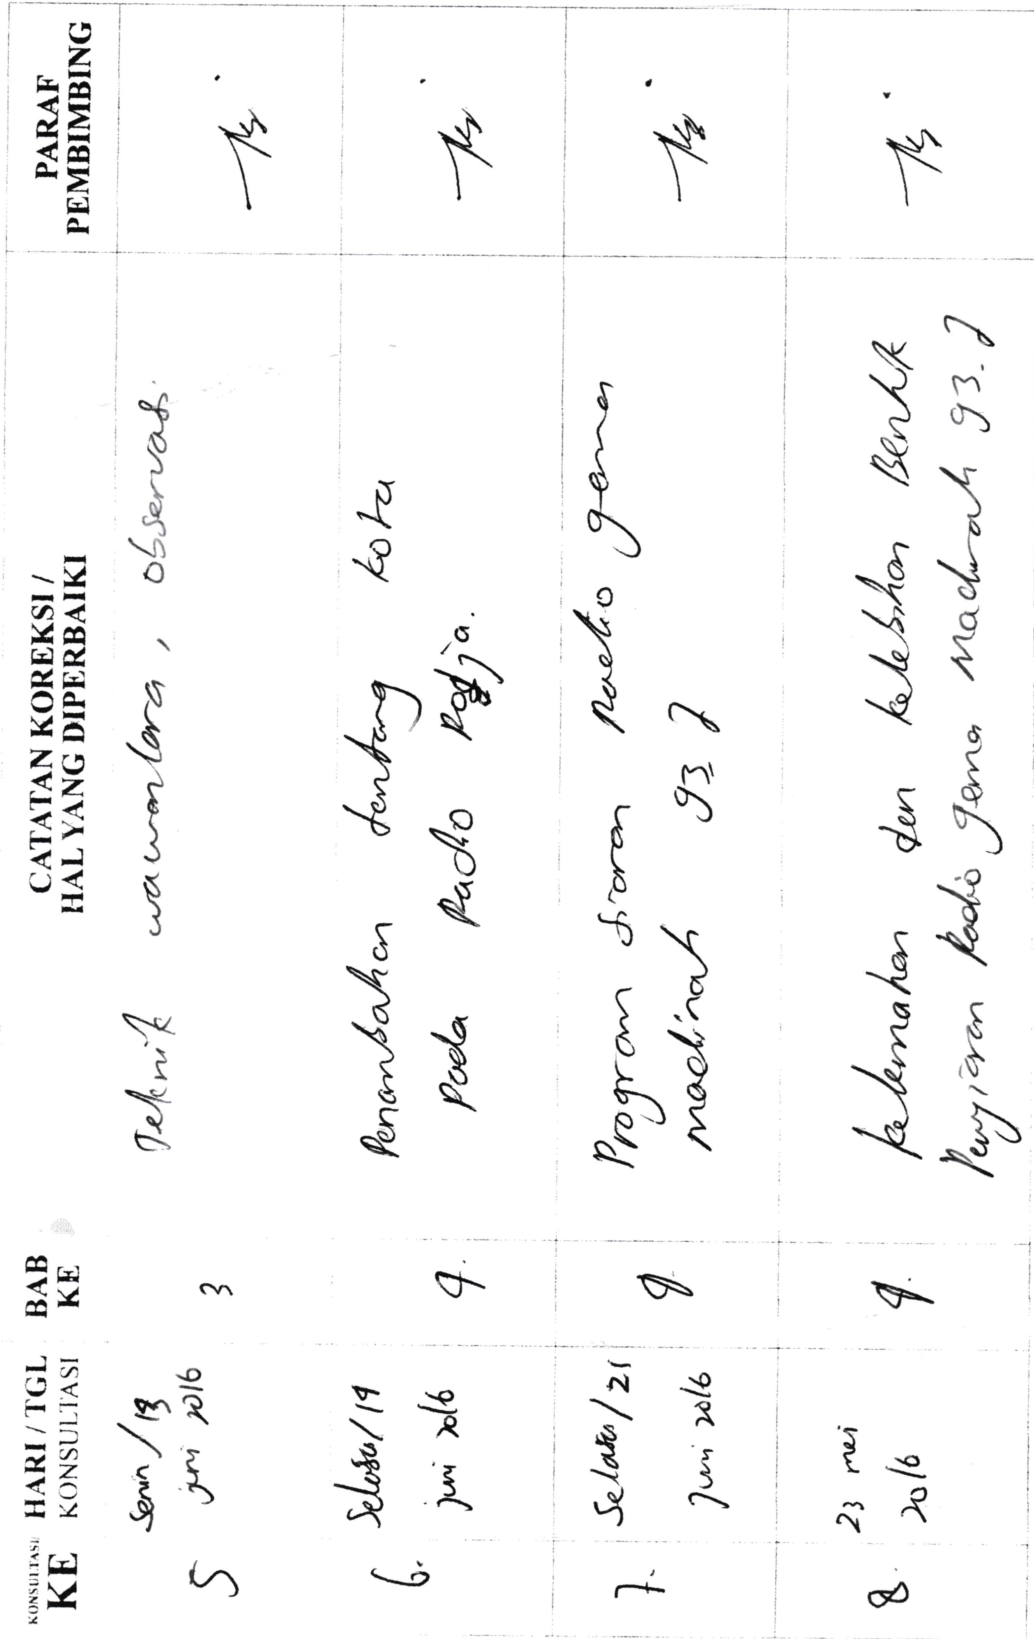 KONSULTASI KE
HARI / TGL KONSULTASI
BAB KE
CATATAN KOREKSI / HAL YANG DIPERBAIKI
PARAF PEMBIMBING
5
Senin / 13
juni 2016
3
Teknik wawancara, observasi.
6.
Selasa / 14
juni 2016
4.
Penambahan tentang kota
Pada Radio Rodja.
7.
Selasa / 21
Juni 2016
4
Program siaran Radio gema
madinah 93.7
8.
23 mei
2016
4.
kelemahan den kelebihan Bentuk
Penyiaran Radio gema Madinah 93.7